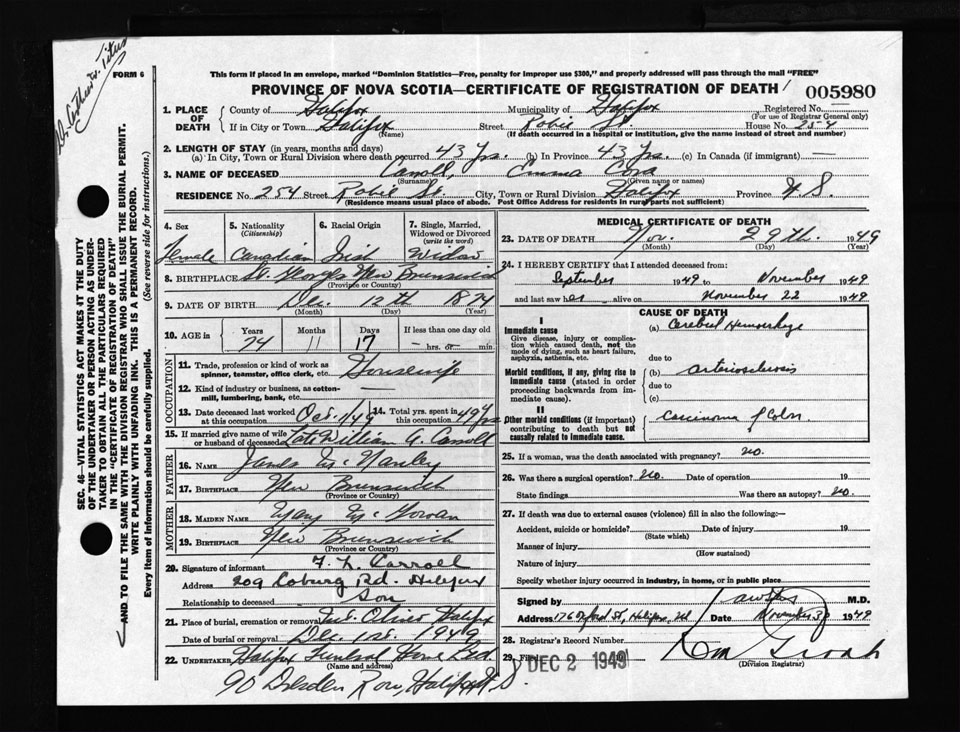 Dr. Arthur W. Titus
FORM 6
This form if placed in an envelope, marked "Dominion Statistics—Free, penalty for improper use $300," and properly addressed will pass through the mail "FREE"
PROVINCE OF NOVA SCOTIA—CERTIFICATE OF REGISTRATION OF DEATH
005980
1. PLACE OF DEATH County of Halifax Municipality of Halifax Registered No.
(For use of Registrar General only)
If in City or Town Halifax Street Robie St. House No. 254
(Name) (If death occurred in a hospital or institution, give the name instead of street and number)
2. LENGTH OF STAY (in years, months and days)
(a) In City, Town or Rural Division where death occurred 43 Yrs. (b) In Province 43 Yrs. (c) In Canada (if immigrant) —
3. NAME OF DECEASED Carroll, Emma Cora
(Surname) (Given name or names)
RESIDENCE No. 254 Street Robie St. City, Town or Rural Division Halifax Province N.S.
(Residence means usual place of abode. Post Office Address for residents in rural parts not sufficient)
SEC. 46—VITAL STATISTICS ACT MAKES IT THE DUTY
OF THE UNDERTAKER OR PERSON ACTING AS UNDER-
TAKER TO OBTAIN ALL THE PARTICULARS REQUIRED
IN THE "CERTIFICATE OF REGISTRATION OF DEATH"
AND TO FILE THE SAME WITH THE DIVISION REGISTRAR WHO SHALL ISSUE THE BURIAL PERMIT.
WRITE PLAINLY WITH UNFADING INK. THIS IS A PERMANENT RECORD.
Every item of information should be carefully supplied. (See reverse side for instructions.)
4. Sex 5. Nationality (Citizenship) 6. Racial Origin 7. Single, Married, Widowed or Divorced (write the word)
Female Canadian Irish Widow
8. BIRTHPLACE St. Georges New Brunswick
(Province or Country)
9. DATE OF BIRTH Dec. 12th 1874
(Month) (Day) (Year)
10. AGE in Years Months Days If less than one day old
74 11 17 — hrs. or — min.
OCCUPATION
11. Trade, profession or kind of work as spinner, teamster, office clerk, etc. Housewife
12. Kind of industry or business, as cotton-mill, lumbering, bank, etc. —
13. Date deceased last worked at this occupation Oct. 1/49 14. Total yrs. spent in this occupation 49 Yrs
15. If married give name of wife or husband of deceased Late William G. Carroll
FATHER
16. NAME James Mc Nanley
17. BIRTHPLACE New Brunswick
(Province or Country)
MOTHER
18. MAIDEN NAME Mary Mc Gowan
19. BIRTHPLACE New Brunswick
(Province or Country)
20. Signature of informant F. L. Carroll
Address 209 Coburg Rd. Halifax
Relationship to deceased Son
21. Place of burial, cremation or removal Mt. Olivet Halifax
Date of burial or removal Dec. 1st. 1949
22. UNDERTAKER Halifax Funeral Home Ltd.
(Name and address)
90 Dresden Row, Halifax N.S.
MEDICAL CERTIFICATE OF DEATH
23. DATE OF DEATH Nov. 29th. 1949
(Month) (Day) (Year)
24. I HEREBY CERTIFY that I attended deceased from:
September 1949 to November 1949
and last saw her alive on November 22 1949
CAUSE OF DEATH
I
Immediate cause (a) Cerebral Hemorrhage
Give disease, injury or complication which caused death, not the mode of dying, such as heart failure, asphyxia, asthenia, etc.
due to
Morbid conditions, if any, giving rise to immediate cause (stated in order proceeding backwards from immediate cause).
(b) arteriosclerosis
due to
(c)
II
Other morbid conditions (if important) contributing to death but not causally related to immediate cause.
Carcinoma of Colon
25. If a woman, was the death associated with pregnancy? no.
26. Was there a surgical operation? no. Date of operation 19
State findings Was there an autopsy? no.
27. If death was due to external causes (violence) fill in also the following:—
Accident, suicide or homicide? Date of injury 19
(State which)
Manner of injury
(How sustained)
Nature of injury
Specify whether injury occurred in industry, in home, or in public place
Signed by M.D.
Address 176 Oxford St, Halifax, NS Date November 30 1949
28. Registrar's Record Number
29. Filed DEC 2 1949
(Division Registrar)